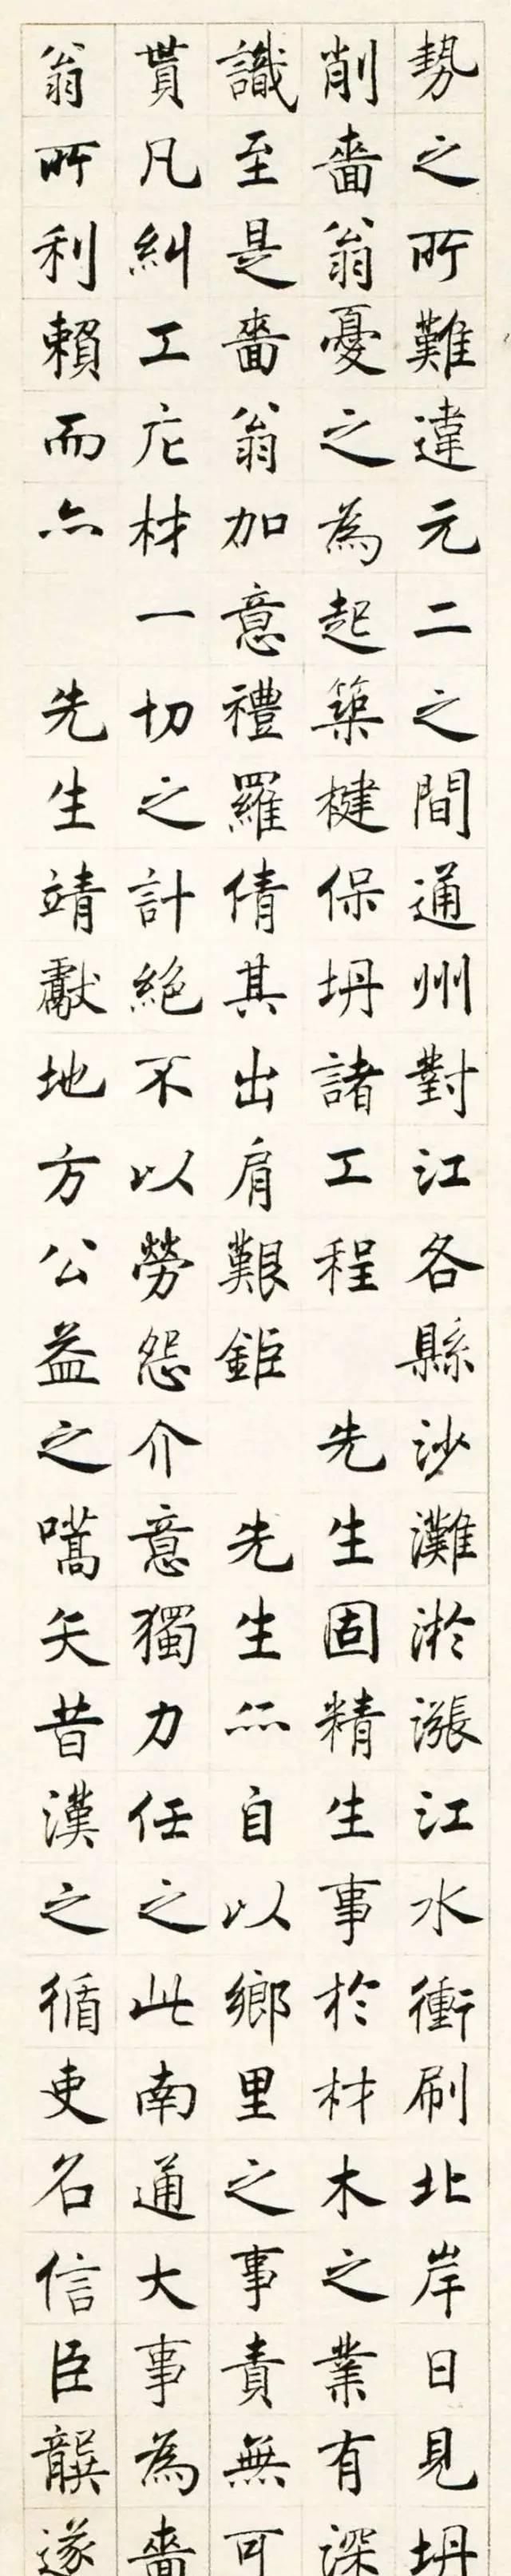 勢之所難違元二之間通州對江各縣沙灘淤漲江水衝刷北岸日見坍
削嗇翁憂之為起築楗保坍諸工程先生固精生事於材木之業有深
識至是嗇翁加意禮羅倩其出肩艱鉅先生亦自以鄉里之事責無可
貰凡糾工庀材一切之計絕不以勞怨介意獨力任之此南通大事為嗇
翁所利賴而亦先生靖獻地方公益之嚆矢昔漢之循吏名信臣龔遂